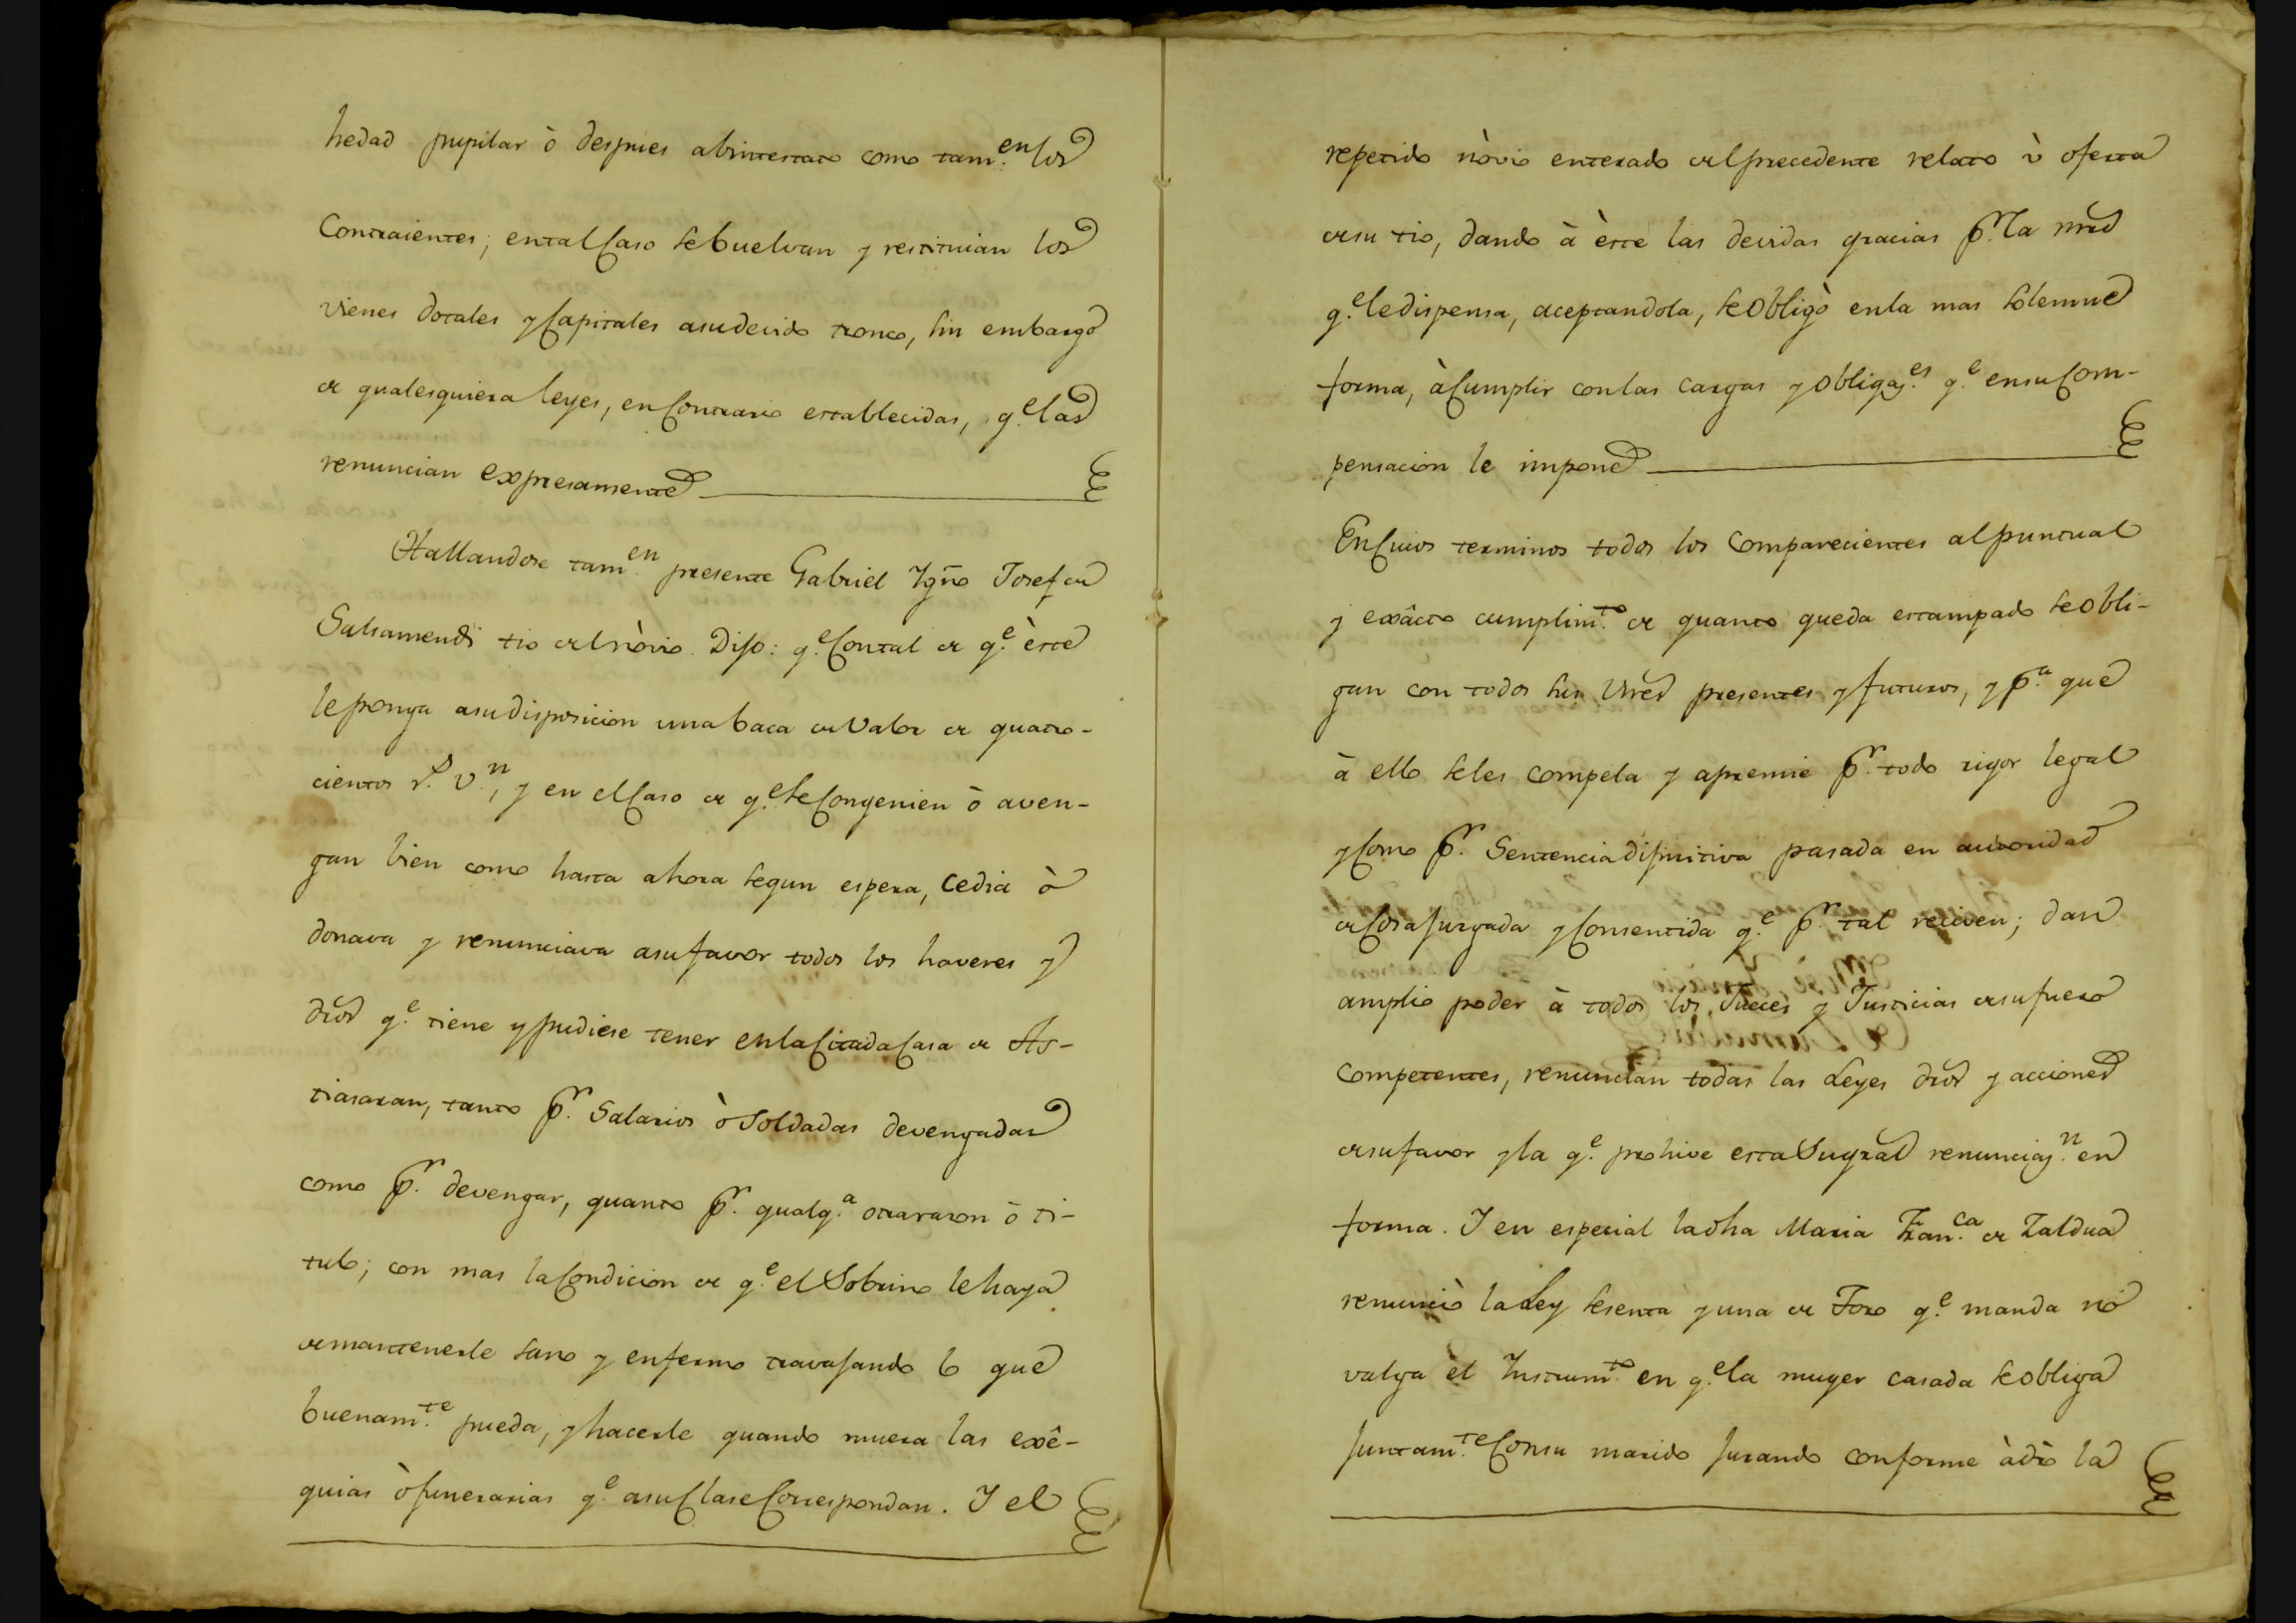 hedad pupilar ò despues abintestato como tam.en los
Contraientes; ental Caso se buelvan y restituian los
vienes dotales y Capitales asudevido tronco, sin embargo
de qualesquiera leyes, en Contrario establecidas, q.e las
renuncian expresamente
Hallandose tam.en presente Gabriel Ygn̄o Josef de
Salsamendi tio del nòvio. Dijo: q.e Contal de q.e èste
le ponga asu disposicion una baca de Valor de quatro-
cientos r.s v.n, y en el Caso de q.e se Congenien ò aven-
gan bien como hasta ahora segun espera, cedia ò
donava y renunciava asufavor todos los haveres y
dros q.e tiene y pudiese tener en la Citada Casa de As-
tiasaran, tanto p.r Salarios ò Soldadas devengadas
como p.r devengar, quanto p.r qualq.a otra razon ò ti-
tulo; con mas la Condicion de q.e el Sobrino le haya
de mantenerle sano y enfermo travajando lo que
buenam.te pueda, y hacerle quando muera las exê-
quias ò funerarias q.e asu Clase Correspondan. Y el
repetido nòvio enterado del precedente relato ù oferta
de su tio, dando à èste las devidas gracias p.r la mrd
q.e le dispensa, aceptandola, se Obligò en la mas solemne
forma, à Cumplir con las cargas y Obligaz.es q.e en su Com-
pensacion le impone
En Cuios terminos todos los Comparecientes al puntual
y exâcto cumplim.to de quanto queda estampado se obli-
gan con todos sus Vnes presentes y futuros, y p.a que
à ello seles compela y apremie p.r todo rigor legal
y Como p.r Sentencia difinitiva pasada en autoridad
de Cosa juzgada y Consentida q.e p.r tal reciven; dan
amplio poder à todos los Jueces y Justicias de su fuero
Competentes, renuncian todas las Leyes dros y acciones
de su favor y la q.e prohive esta Sugral renunciaz.n en
forma. Y en especial la dha Maria Fran.ca de Zaldua
renunciò la Ley sesenta y una de Toro q.e manda no
valga èl Instrum.to en q.e la muger casada se obliga
juntam.te Con su marido jurando conforme à dro la